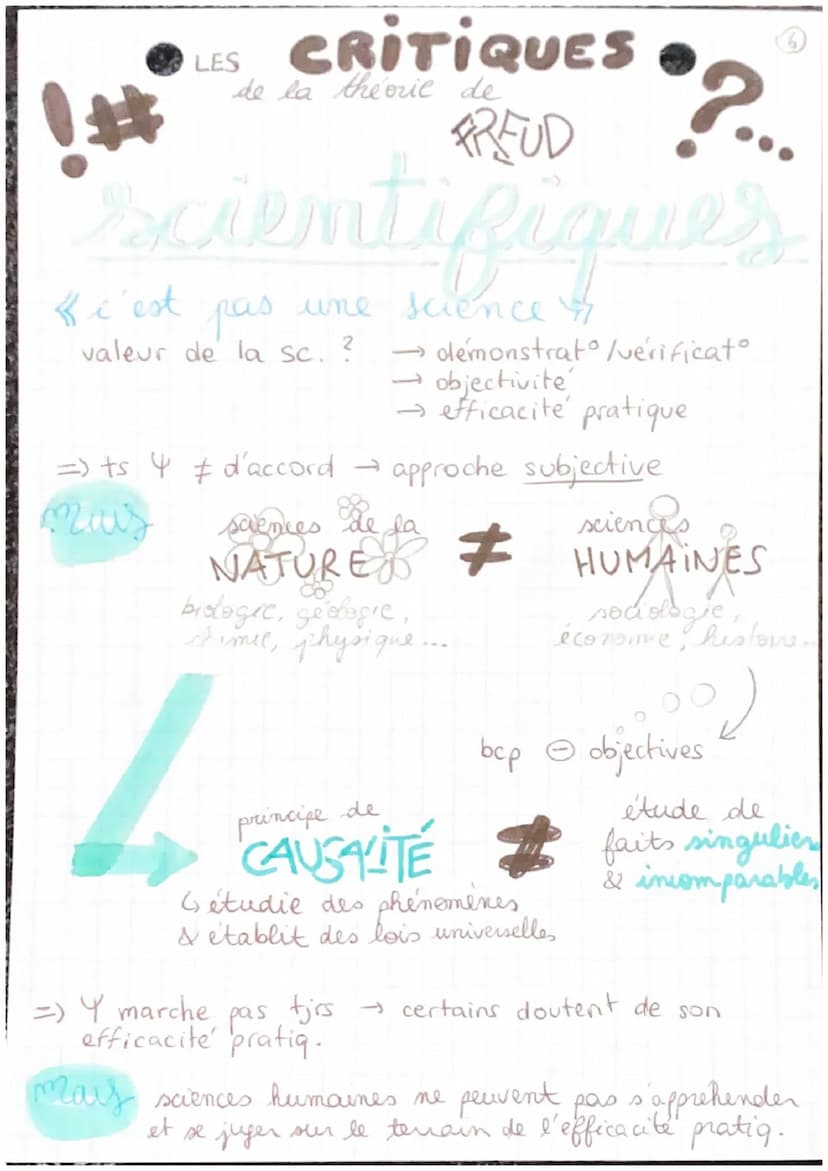 6
LES CRITIQUES
de la théorie de
FREUD
!# ?...
scientifiques
« c'est pas une science »
valeur de la sc. ? → démonstrat° /vérificat°
→ objectivité
→ efficacité pratique
=> ts Ψ ≠ d'accord → approche subjective
Mais
sciences de la NATURE ≠ sciences HUMAINES
biologie, géologie, chimie, physique... sociologie, économie, histoire...
bcp ⊖ objectives
principe de CAUSALITÉ ≠ étude de faits singuliers & incomparables
↳ étudie des phénomènes
& établit des lois universelles
=> Ψ marche pas tjrs → certains doutent de son
efficacité pratiq.
Mais sciences humaines ne peuvent pas s'appréhender
et se juger sur le terrain de l'efficacité pratiq.